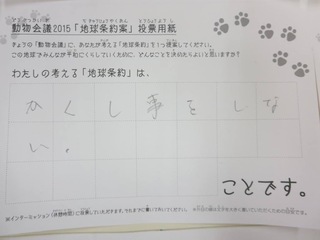 動物会議2015「地球条約案」投票用紙
きょうの「動物会議」に、あなたが考える「地球条約」を1つ提案してください。
この地球でみんなが平和にくらしていくために、どんなことを決めたらよいと思いますか?
わたしの考える「地球条約」は、
かくし事をしな
い。
ことです。